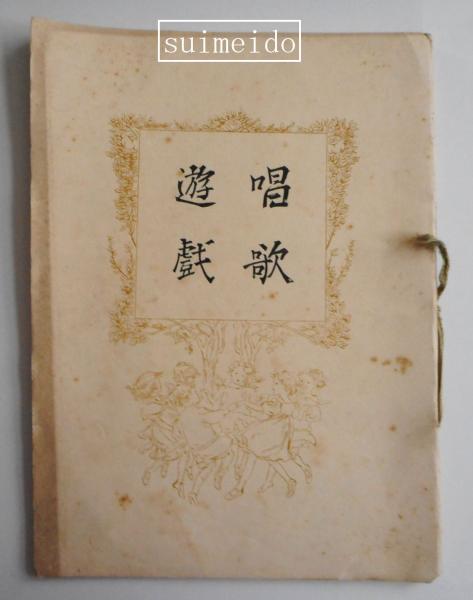 suimeido
唱歌
遊戯